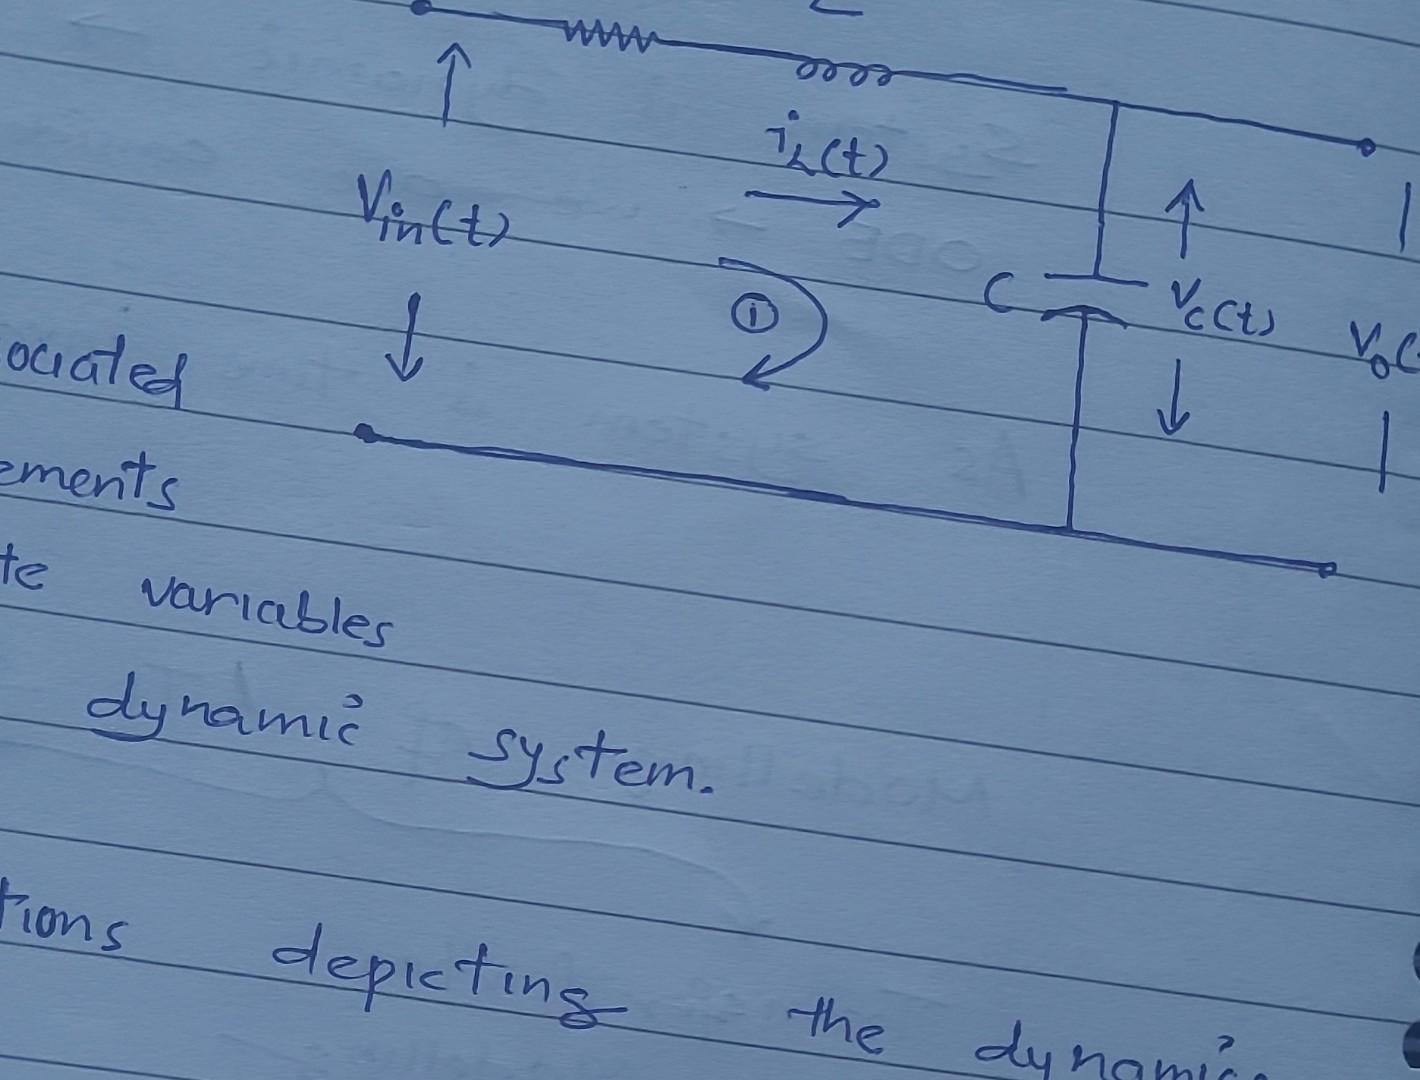 L
i_L(t)
V_in(t)
C
V_c(t)
V_o(
①
ociated
ements
te variables
dynamic system.
tions depicting the dynamic